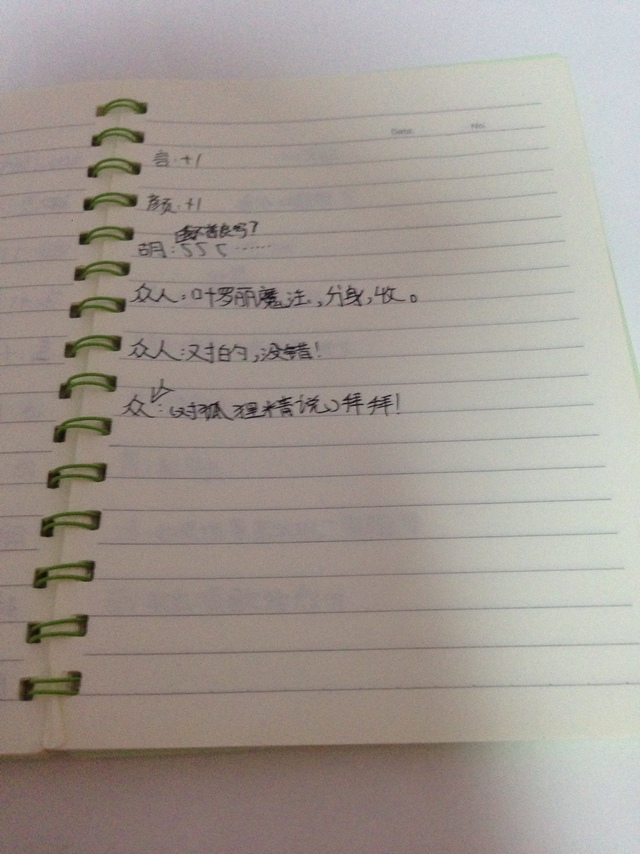 Date: No:
言:+1
颜:+1
不善良吗?
胡:555……
众人:叶罗丽魔法,分身,收。
众人:对拍的,没错!
众人:(对狐狸精说)拜拜!